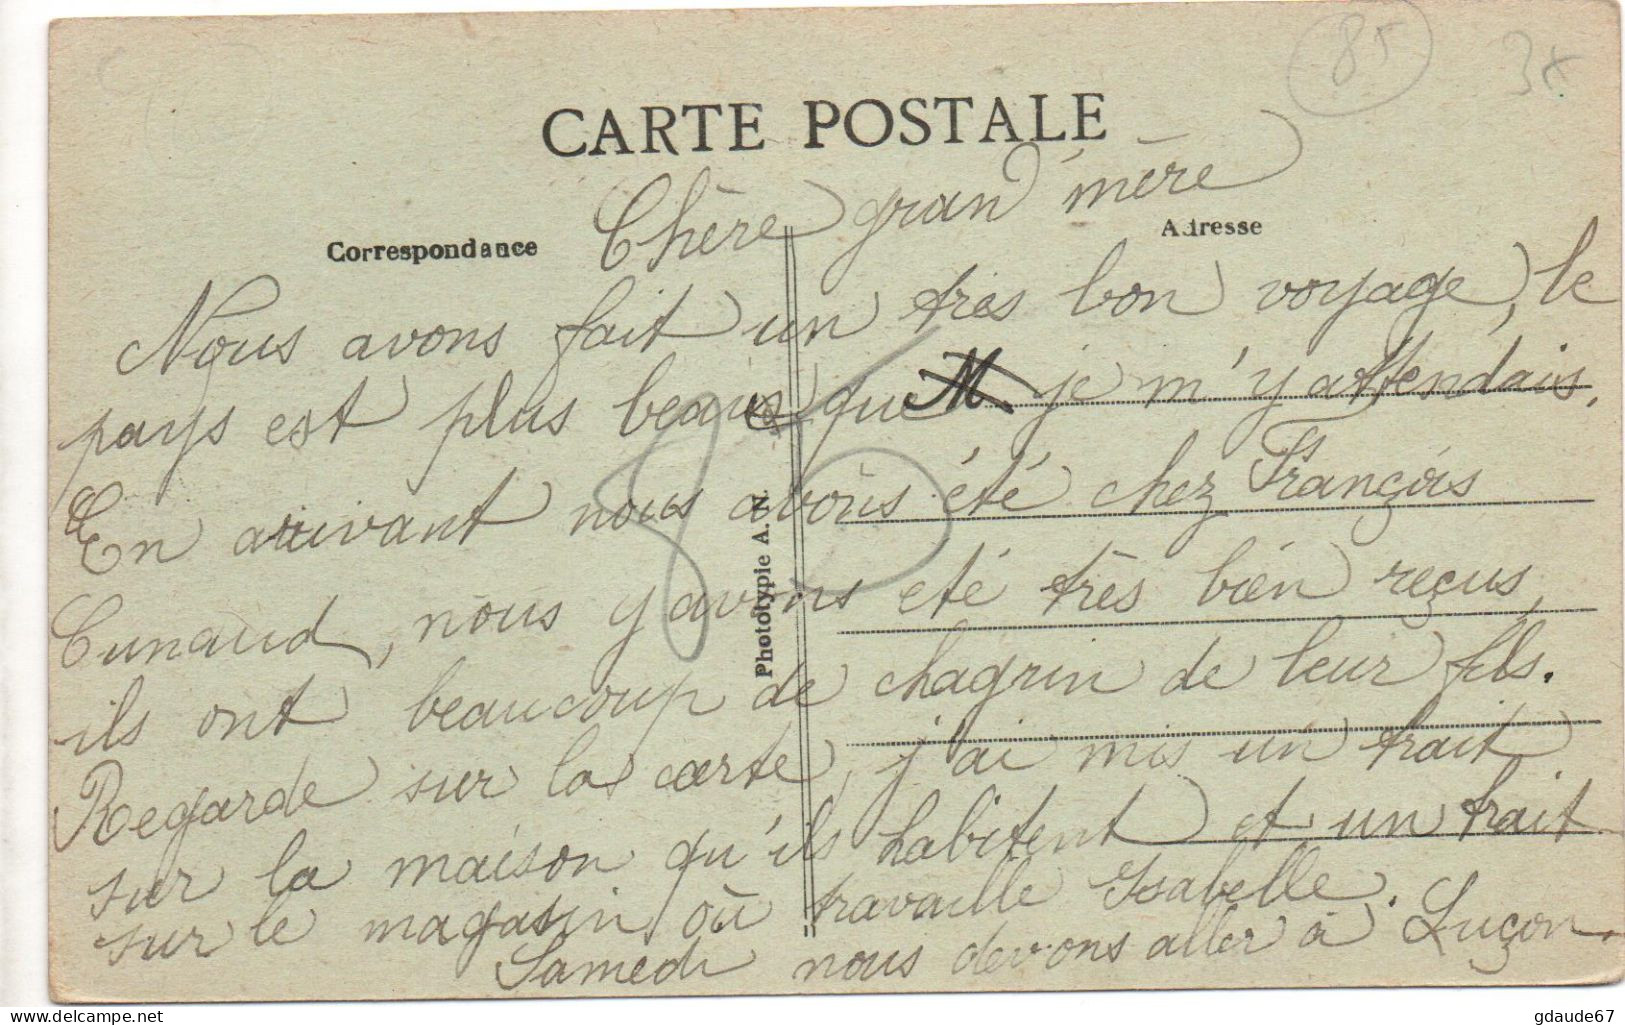 85
3x
CARTE POSTALE
Correspondance
Adresse
Chère gran'mère
Nous avons fait un très bon voyage, le
pays est plus beau que je m'y attendais.
En arrivant nous avons été chez François
Cunaud, nous y avons eté très bien reçus,
ils ont beaucoup de chagrin de leur fils.
Regarde sur la carte, j'ai mis un trait
sur la maison qu'ils habitent et un trait
sur le magasin où travaille Isabelle.
Samedi nous devons aller à Luçon.
85
Phototypie A. N.
www.delcampe.net
gdaude67